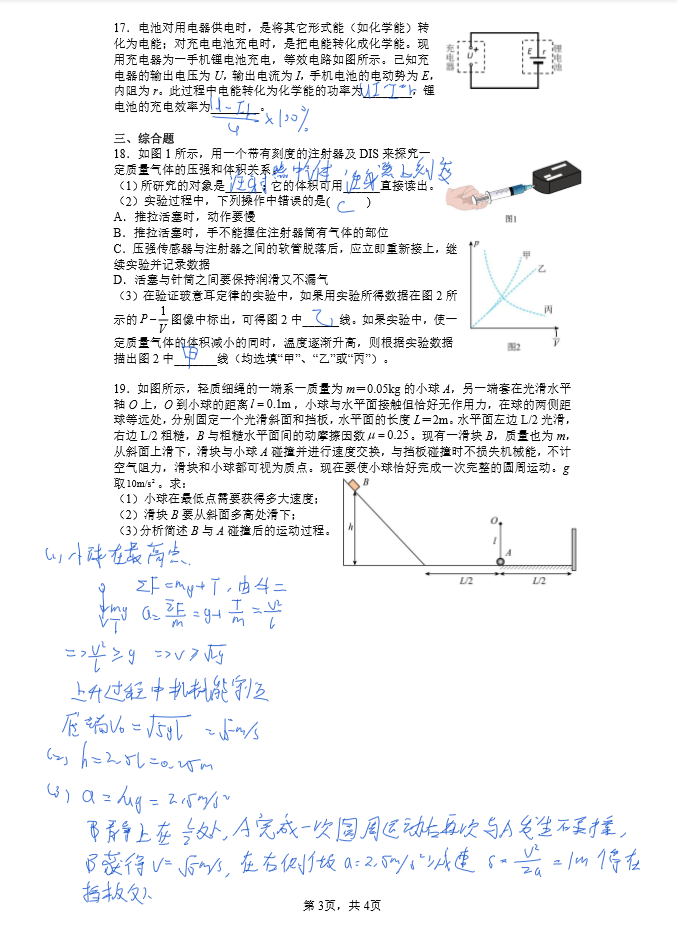 17．电池对用电器供电时，是将其它形式能（如化学能）转
化为电能；对充电电池充电时，是把电能转化成化学能。现
用充电器为一手机锂电池充电，等效电路如图所示。已知充
电器的输出电压为 U，输出电流为 I，手机电池的电动势为 E，
内阻为 r。此过程中电能转化为化学能的功率为 UI-I²r，锂
电池的充电效率为 ×100% 。
充电器
U
E
r
锂电池
三、综合题
18．如图 1 所示，用一个带有刻度的注射器及 DIS 来探究一
定质量气体的压强和体积关系。
（1）所研究的对象是 ；它的体积可用 注射器上刻度 直接读出。
（2）实验过程中，下列操作中错误的是( C )
A．推拉活塞时，动作要慢
B．推拉活塞时，手不能握住注射器筒有气体的部位
C．压强传感器与注射器之间的软管脱落后，应立即重新接上，继
续实验并记录数据
D．活塞与针筒之间要保持润滑又不漏气
（3）在验证玻意耳定律的实验中，如果用实验所得数据在图 2 所
示的 P－1/V 图像中标出，可得图 2 中 乙 线。如果实验中，使一
定质量气体的体积减小的同时，温度逐渐升高，则根据实验数据
描出图 2 中 甲 线（均选填“甲”、“乙”或“丙”）。
图1
p
甲
乙
丙
1/V
图2
19．如图所示，轻质细绳的一端系一质量为 m＝0.05kg 的小球 A，另一端套在光滑水平
轴 O 上，O 到小球的距离 l = 0.1m，小球与水平面接触但恰好无作用力，在球的两侧距
球等远处，分别固定一个光滑斜面和挡板，水平面的长度 L＝2m。水平面左边 L/2 光滑，
右边 L/2 粗糙，B 与粗糙水平面间的动摩擦因数 μ = 0.25。现有一滑块 B，质量也为 m，
从斜面上滑下，滑块与小球 A 碰撞并进行速度交换，与挡板碰撞时不损失机械能，不计
空气阻力，滑块和小球都可视为质点。现在要使小球恰好完成一次完整的圆周运动。g
取 10m/s² 。求：
（1）小球在最低点需要获得多大速度；
（2）滑块 B 要从斜面多高处滑下；
（3）分析简述 B 与 A 碰撞后的运动过程。
B
h
O
l
A
L/2
L/2
(1) 小球在最高点
ΣF=mg+T，由牛二
mg
T
a=ΣF/m=g+T/m=v²/l
=>v²/l≥g =>v≥√lg
上升过程中机械能守恒
底端V₀=√5gl =√5m/s
(2) h=2.5l=0.25m
(3) a=μg=2.5m/s²
B静止在L/2处，A完成一次圆周运动后再次与A发生碰撞，
B获得V=√5m/s，在右侧做a=2.5m/s²减速 s=V²/2a=1m 停在
挡板处
第 3页，共 4页